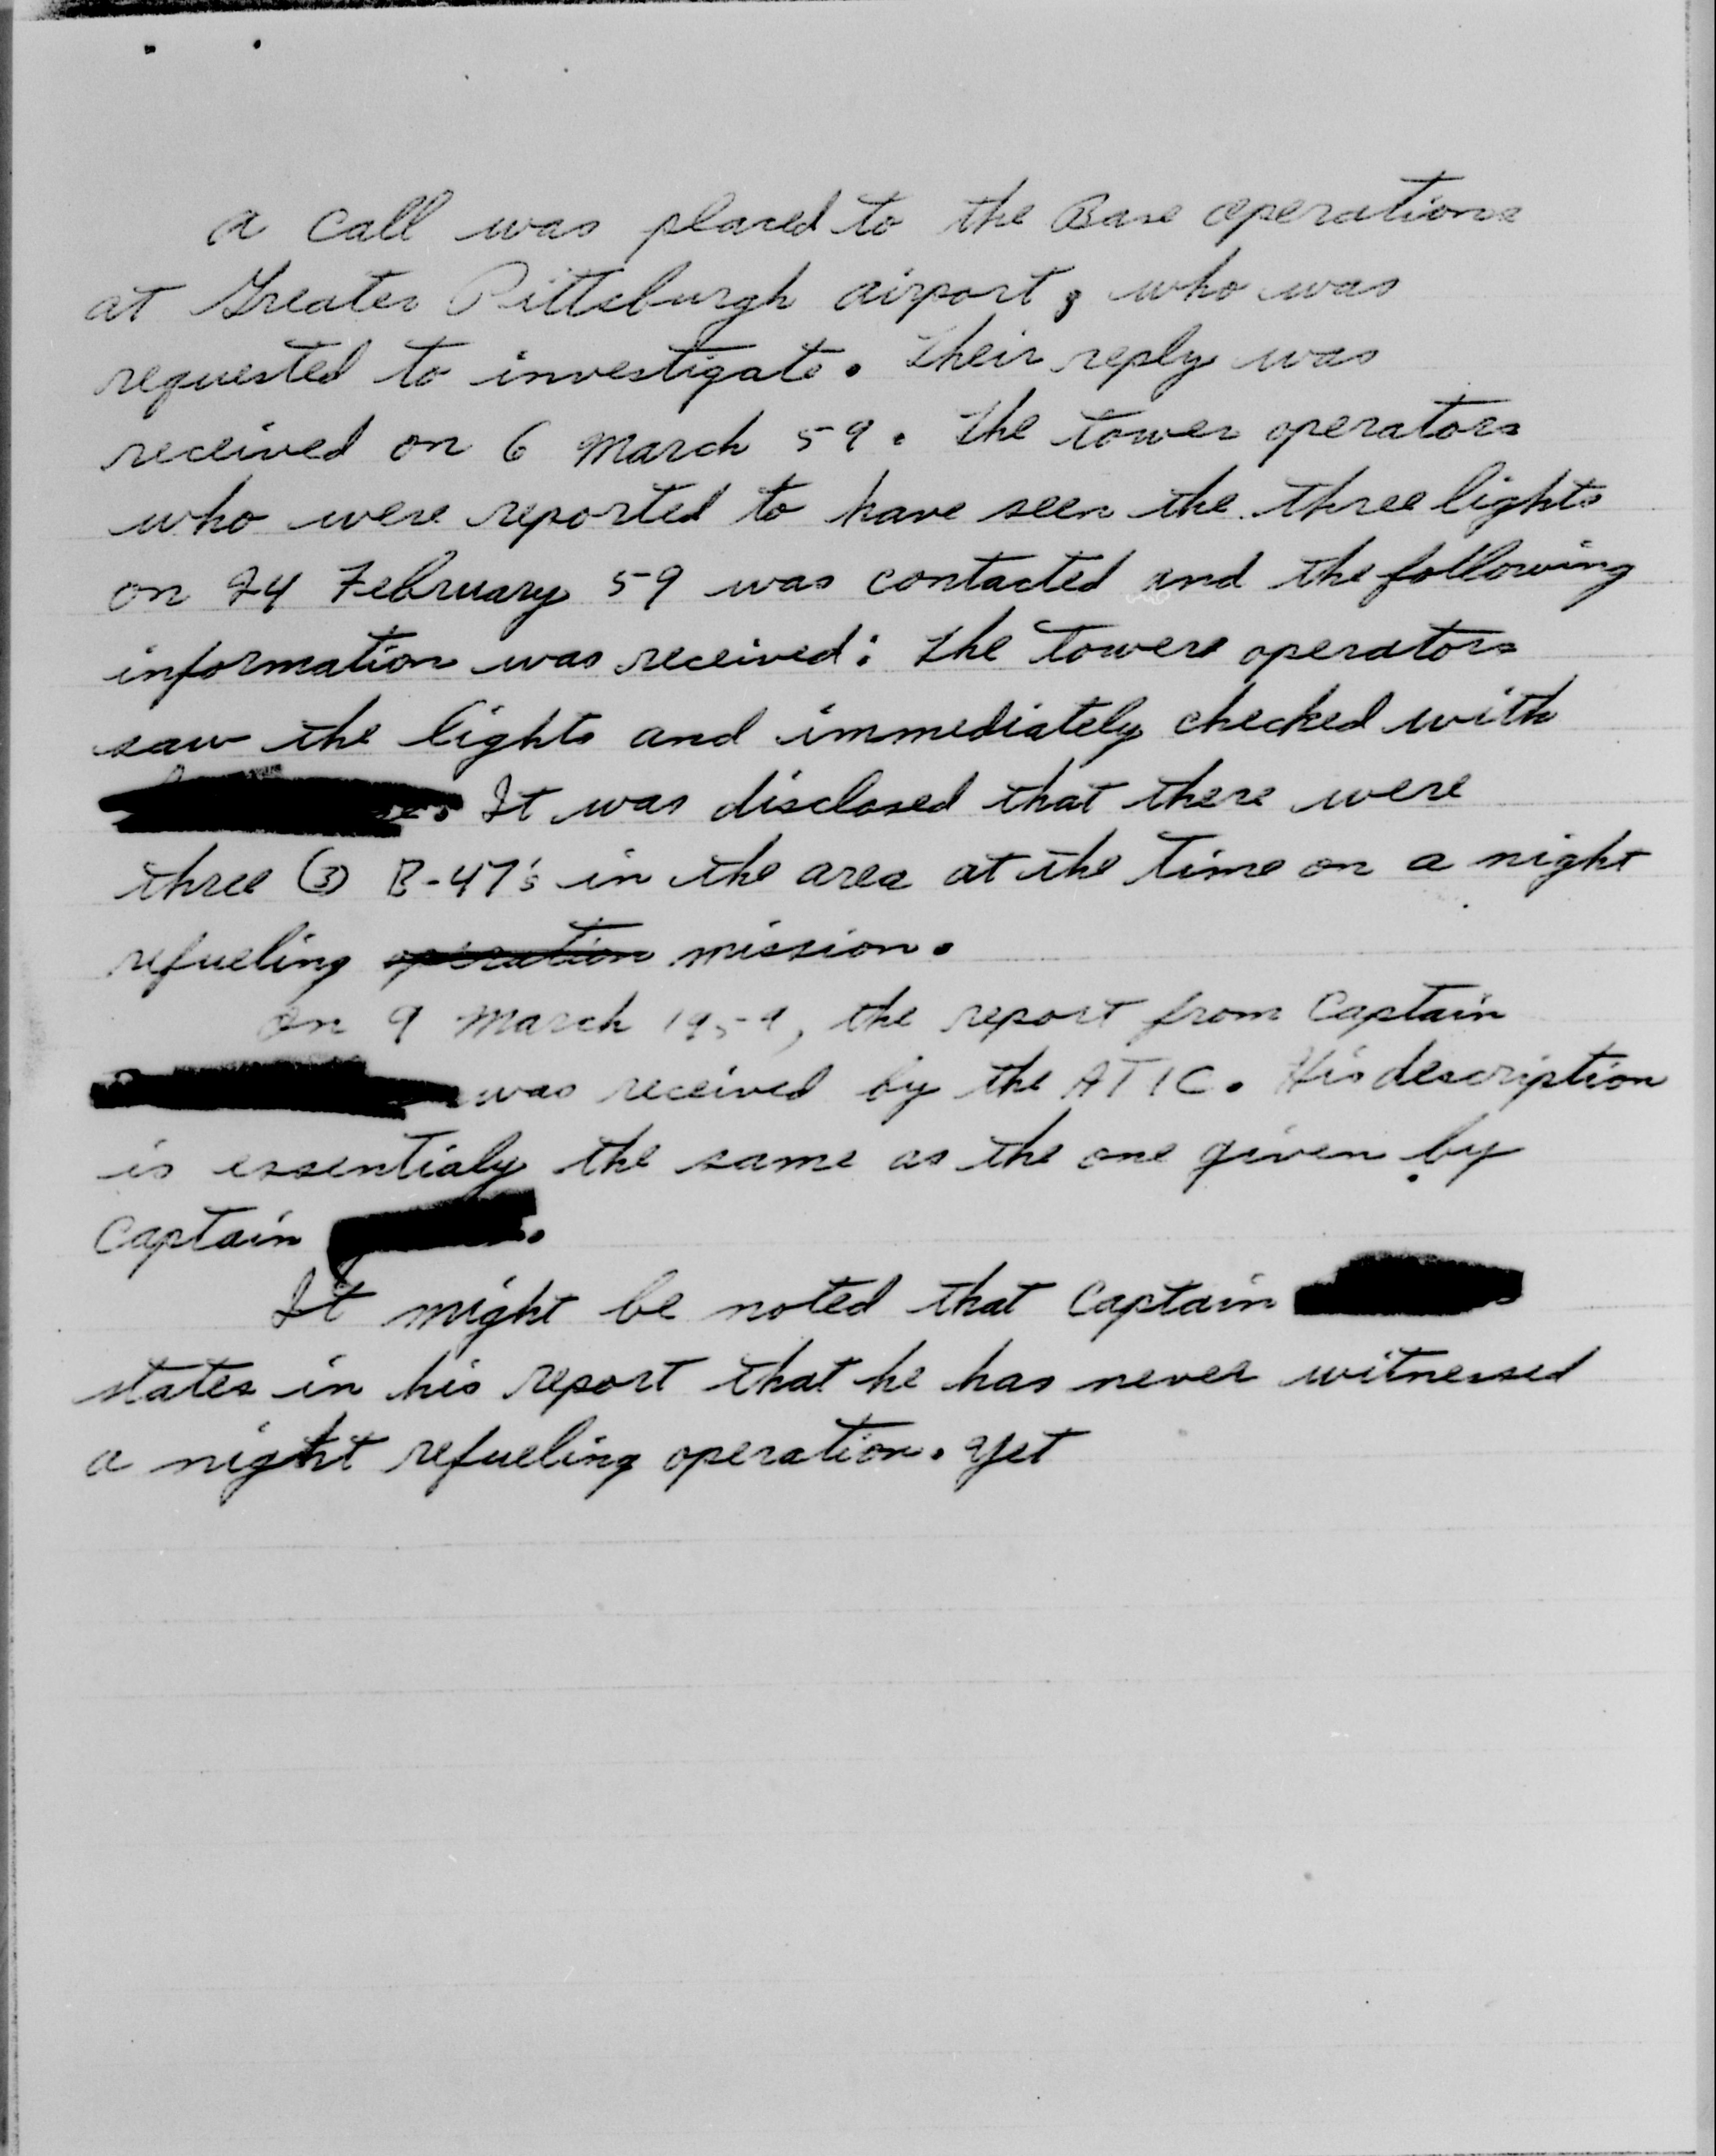 A call was placed to the Base operations
at Greater Pittsburgh airport, who was
requested to investigate. Their reply was
received on 6 March 59. The tower operators
who were reported to have seen the three lights
on 24 February 59 was contacted and the following
information was received: The towers operators
saw the lights and immediately checked with
It was disclosed that there were
three (3) B-47's in the area at the time on a night
refueling operation mission.
On 9 March 1959, the report from Captain
was received by the ATIC. His description
is essentialy the same as the one given by
Captain
It might be noted that Captain
states in his report that he has never witnessed
a night refueling operation. Yet